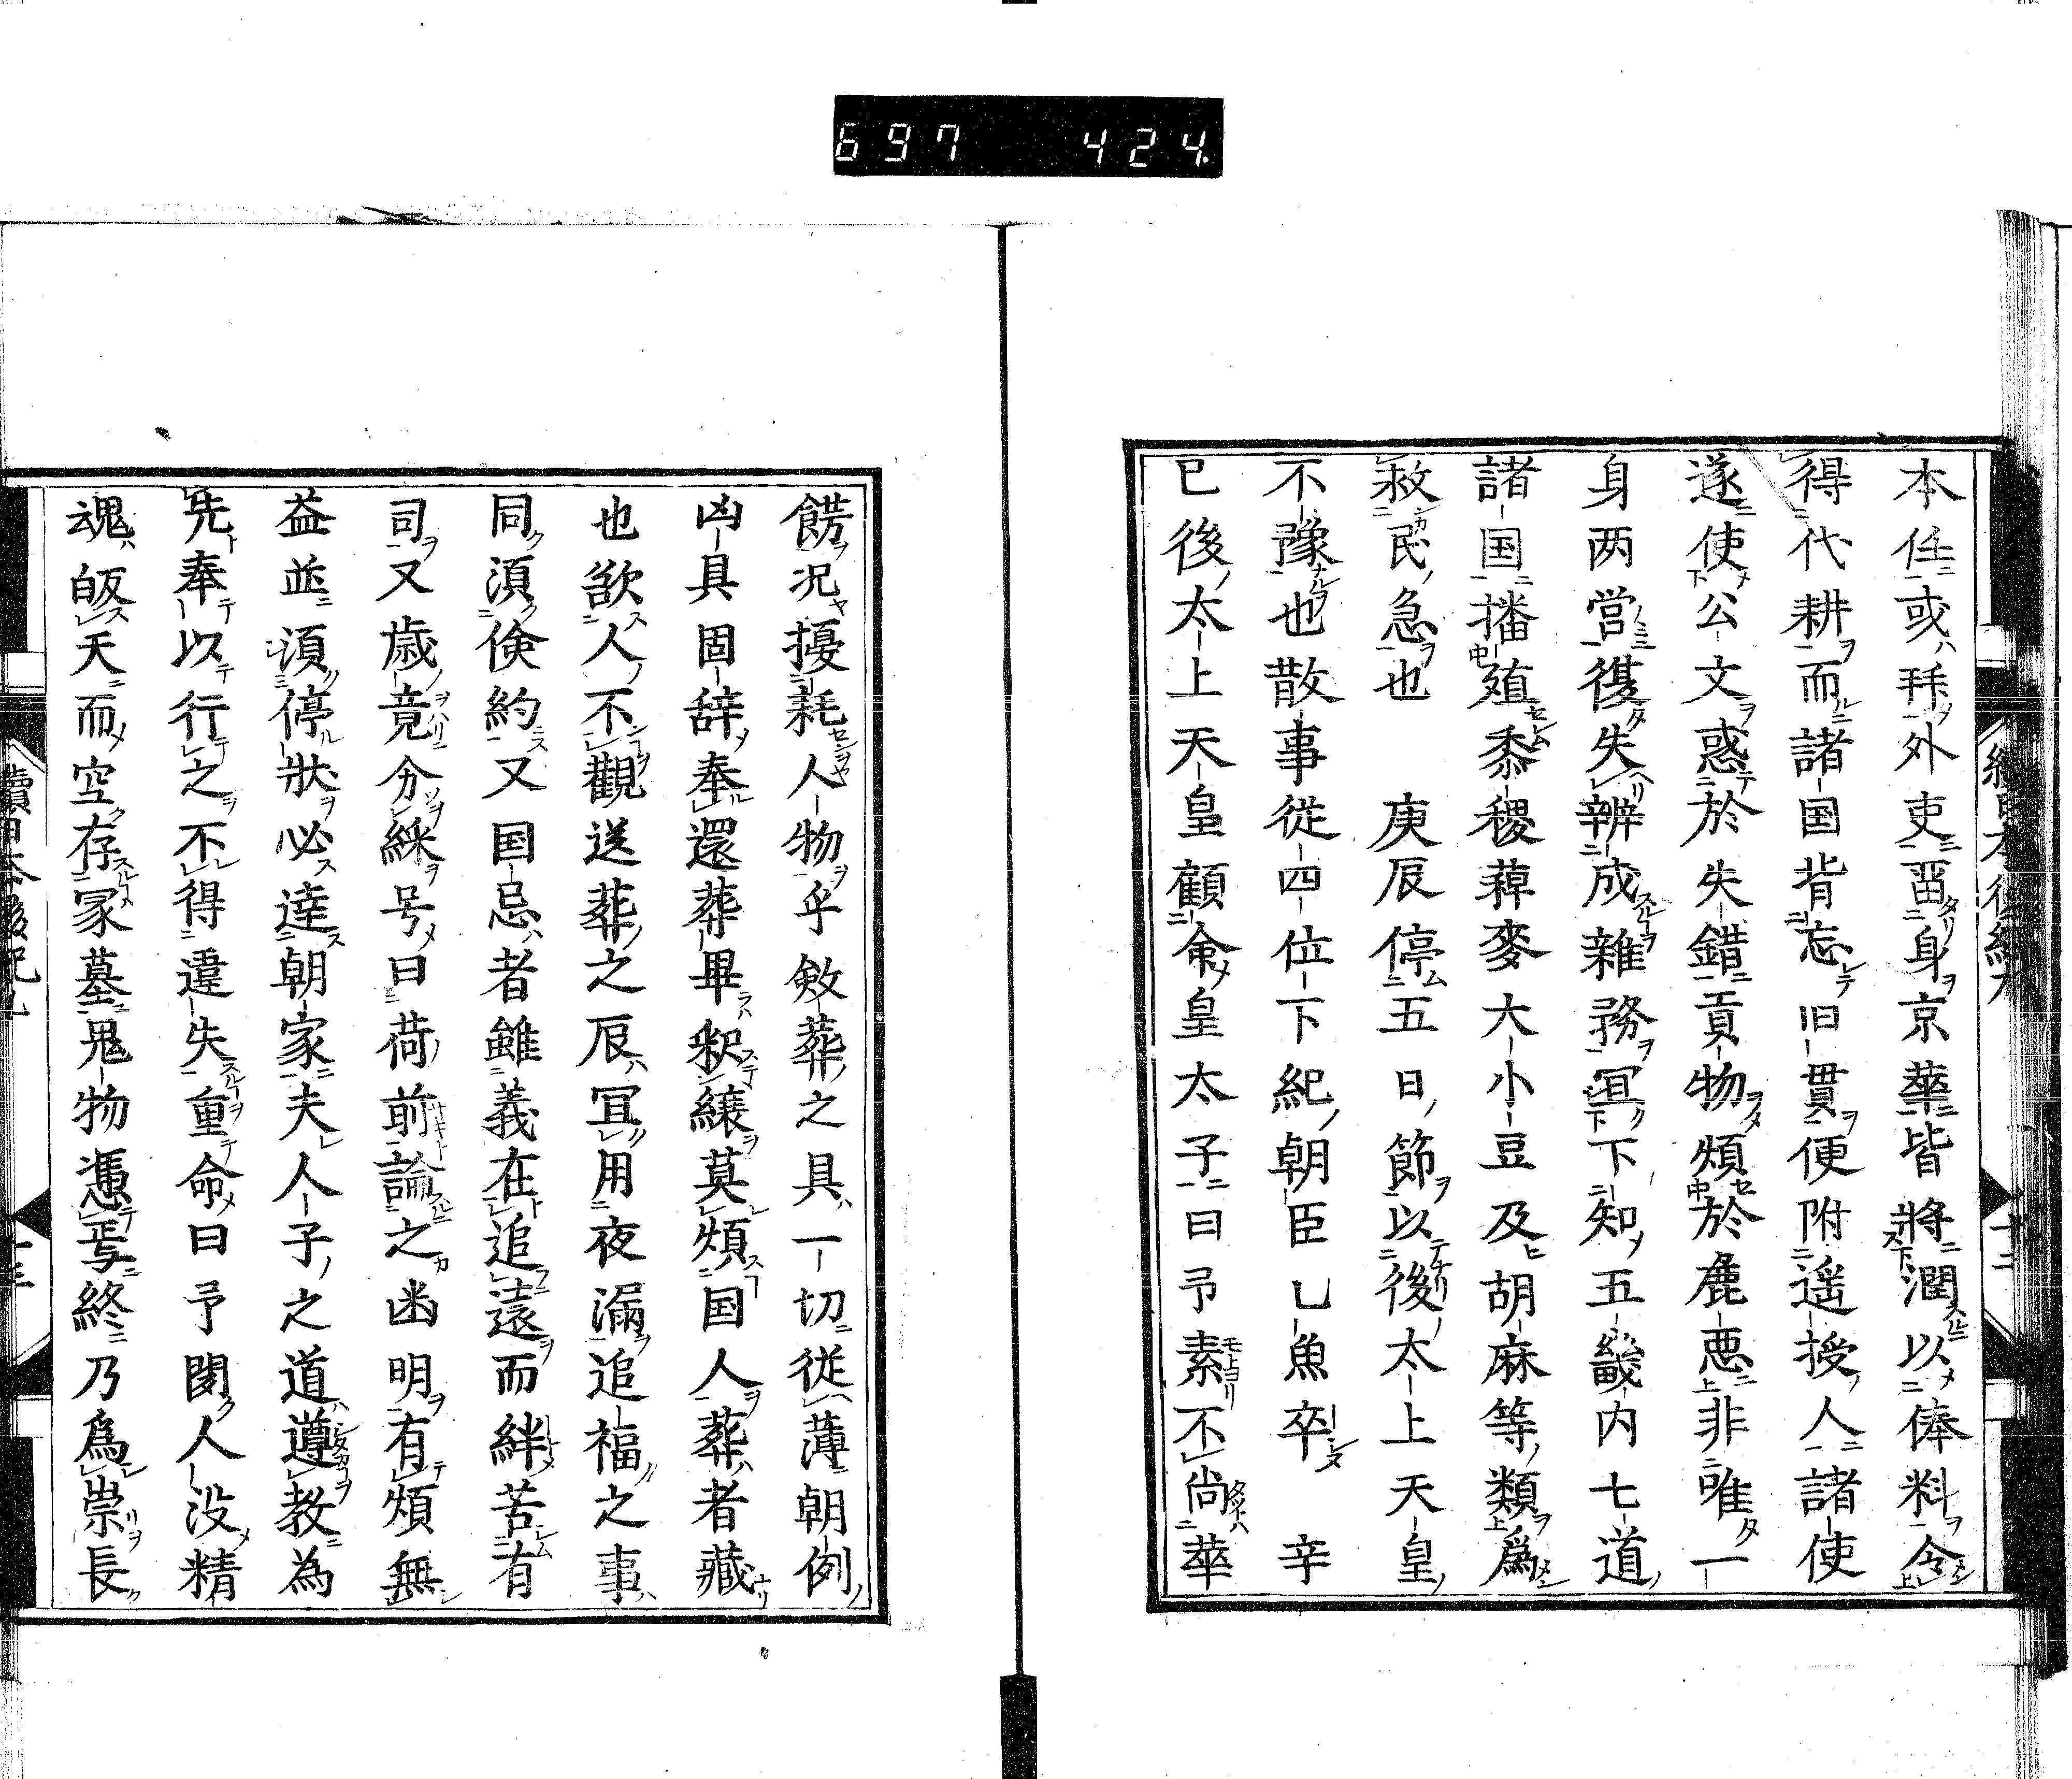 697 424
本任或拜外吏畱身京華皆將潤以俸料令
得代耕而諸国背忘旧貫便附遥授人諸使
遂使公文惑於失錯貢物煩於麁悪非唯一
身两営復失辨成雜務冝下知五畿内七道
諸国播殖黍稷薭麥大小豆及胡麻等類爲
救民急也 庚辰停五日節以後太上天皇
不豫也散事從四位下紀朝臣乚魚卒 辛
巳後太上天皇顧命皇太子曰予素不尚華
餝况擾耗人物乎斂葬之具一切從薄朝例
凶具固辞奉還葬畢釈縗莫煩国人葬者藏
也欲人不觀送葬之辰冝用夜漏追福之事
同湏倹約又国忌者雖義在追遠而絆苦有
司又歳竟分綵号曰荷前論之幽明有煩無
益並湏停狀必逹朝家夫人子之道遵教為
先奉以行之不得違失重命曰予聞人没精
魂皈天而空存冢墓鬼物憑焉終乃爲崇長